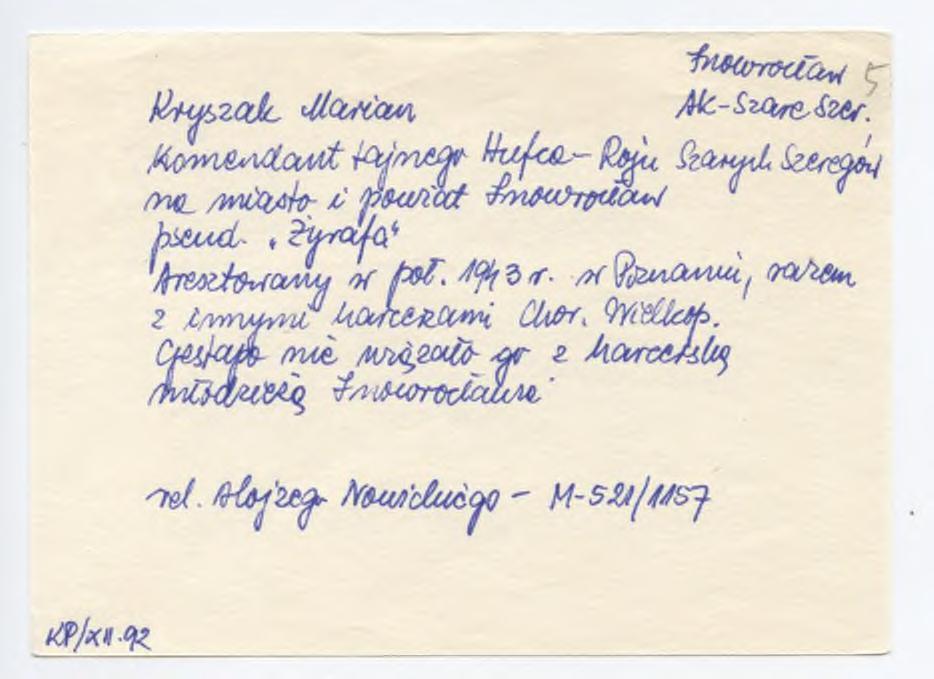 Inowrocław 5
AK-Szare Szer.
Kryszak Marian
Komendant tajnego Hufca - Roju Szarych Szeregów
na miasto i powiat Inowrocław
pseud. "Żyrafa"
Aresztowany w poł. 1943 r. w Poznaniu, razem
z innymi harcerzami Chor. Wielkop.
Gestapo nie wiązało go z harcerską
młodzieżą Inowrocławia
rel. Alojzego Nowickiego - M-521/1157
KP/XII.92